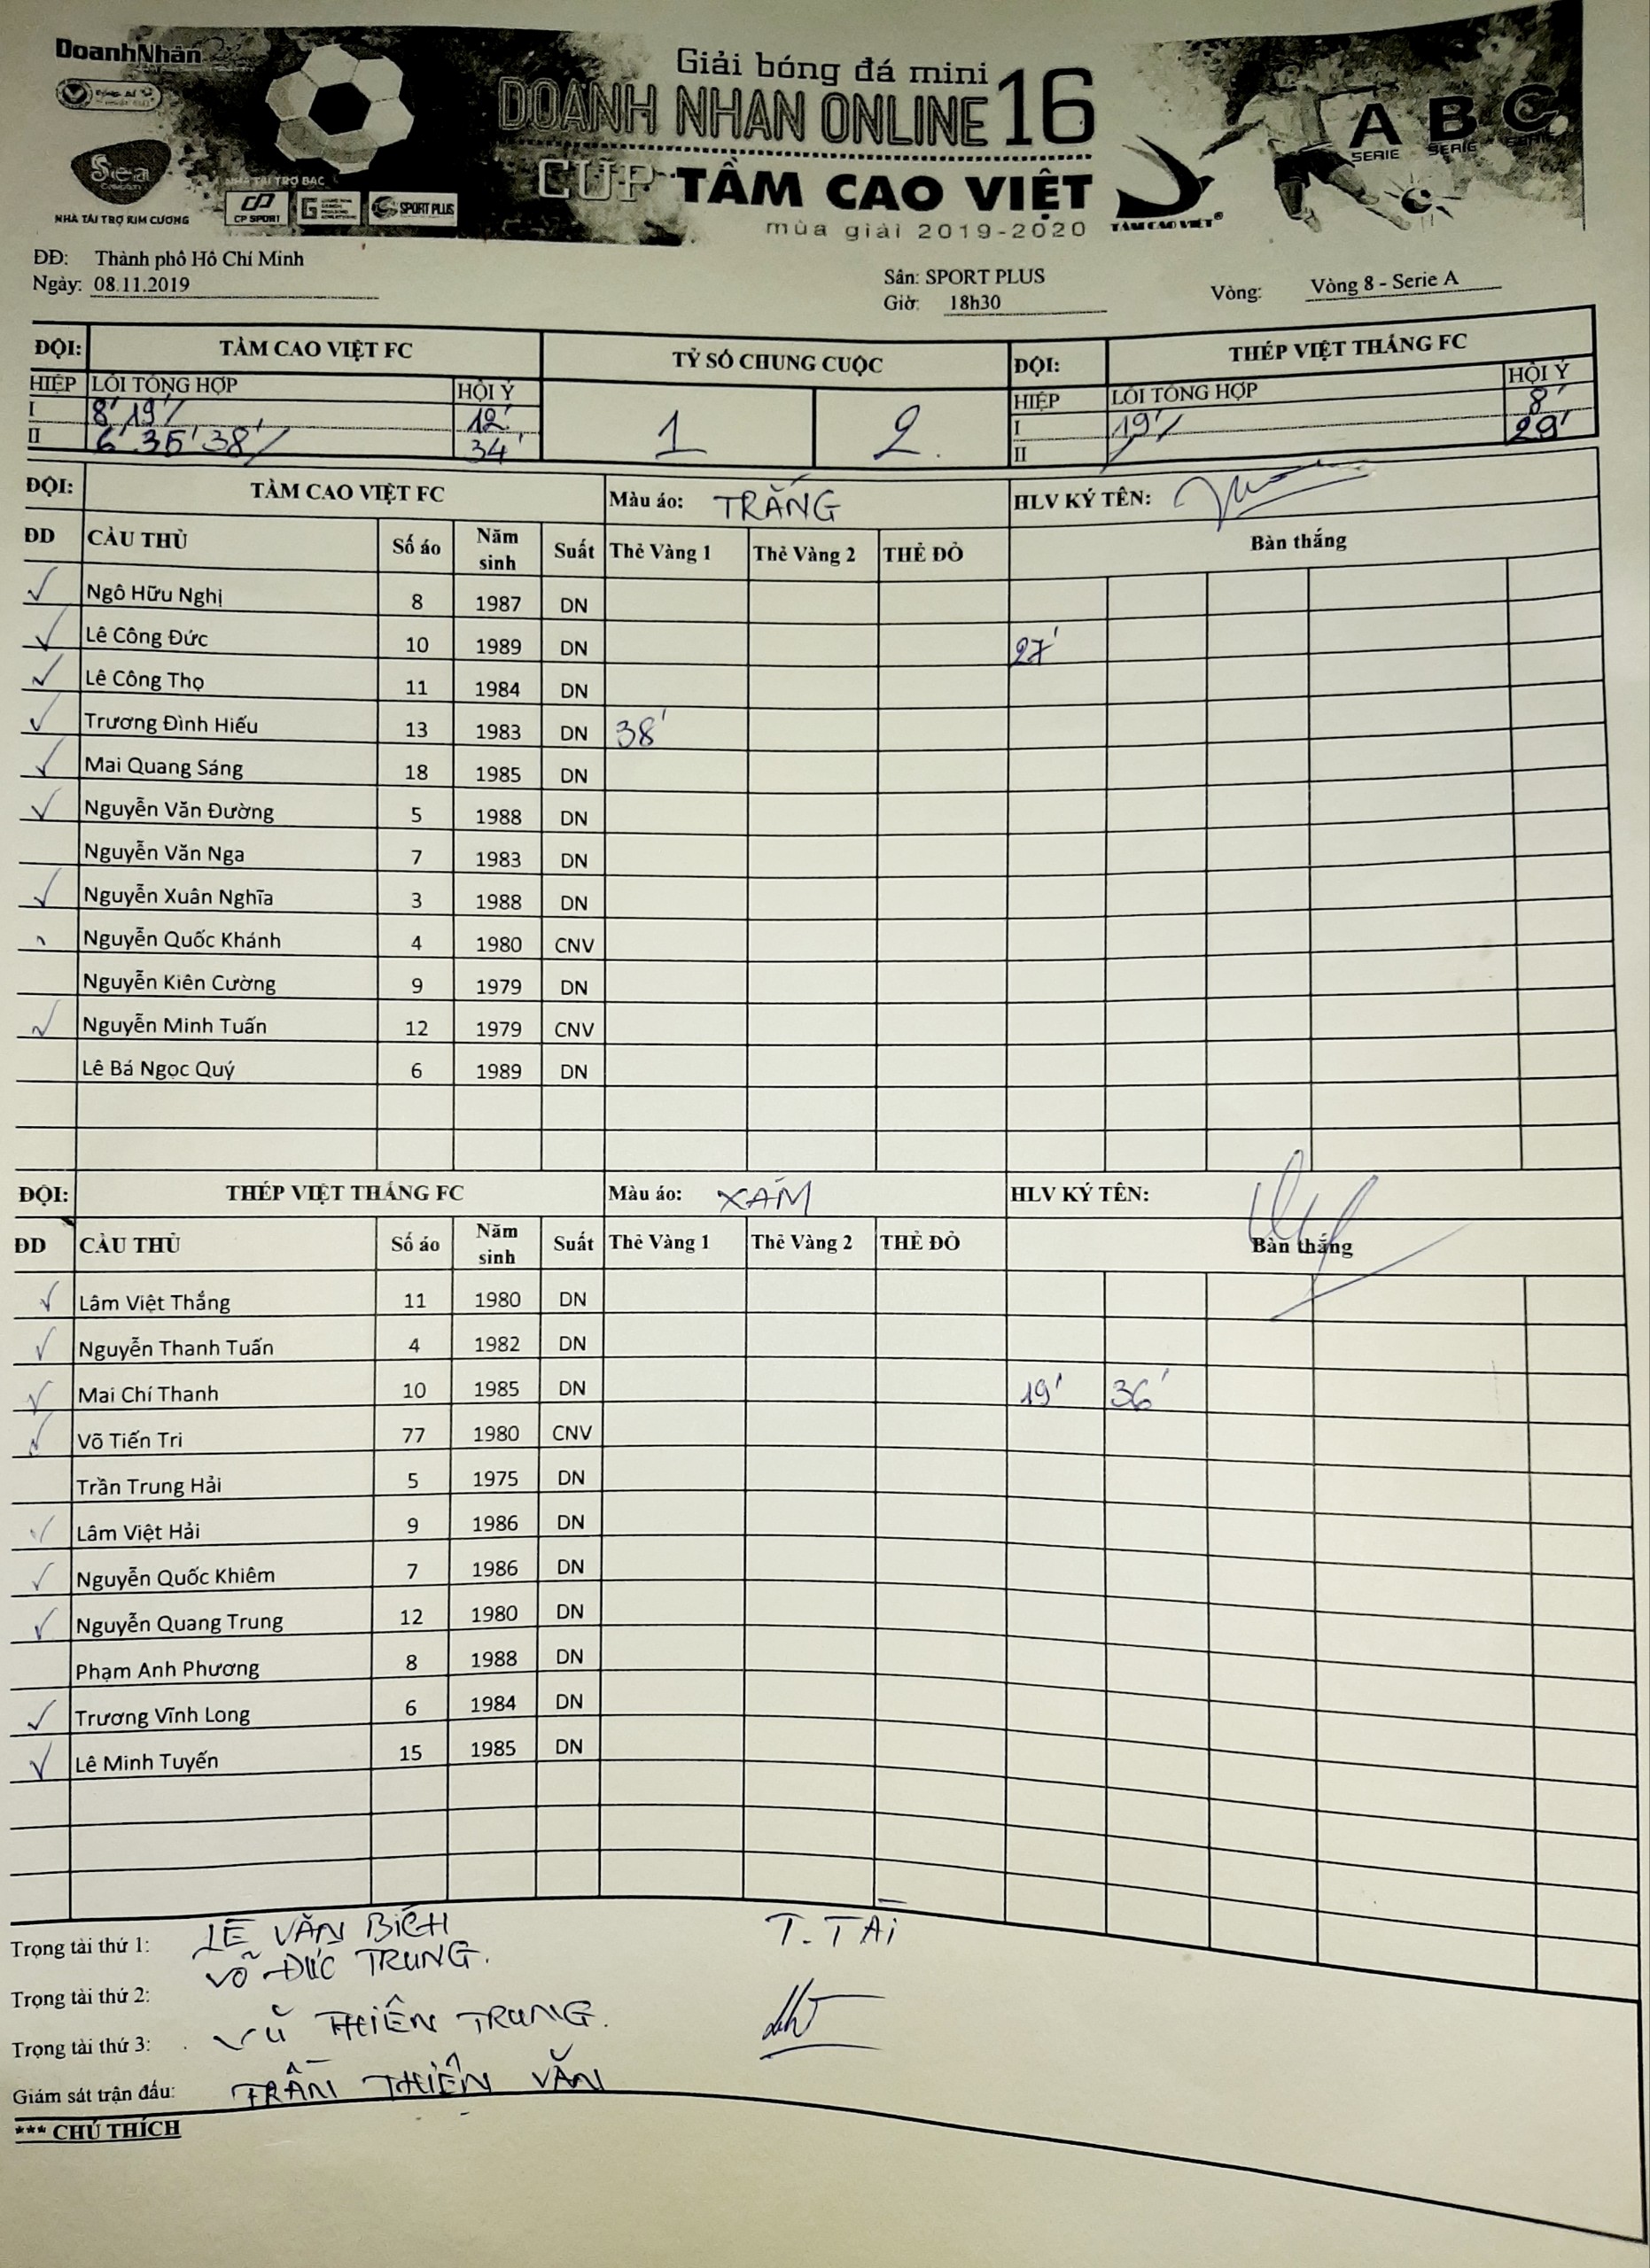 DoanhNhân
Sea
NHÀ TÀI TRỢ KIM CƯƠNG
NHÀ TÀI TRỢ BẠC
CP SPORT
SPORT PLUS
Giải bóng đá mini
DOANH NHAN ONLINE 16
CUP TẦM CAO VIỆT
mùa giải 2019-2020
TẦM CAO VIỆT®
A SERIE B SERIE C SERIE
ĐĐ: Thành phố Hồ Chí Minh
Ngày: 08.11.2019
Sân: SPORT PLUS
Giờ: 18h30
Vòng: Vòng 8 - Serie A
ĐỘI: TẦM CAO VIỆT FC TỶ SỐ CHUNG CUỘC ĐỘI: THÉP VIỆT THẮNG FC
HIỆP LỖI TỔNG HỢP HỘI Ý 1 2 HIỆP LỖI TỔNG HỢP HỘI Ý
I 8' 19' 12' I 19' 8'
II 6' 35' 38' 34' II 29'
ĐỘI: TẦM CAO VIỆT FC Màu áo: TRẮNG HLV KÝ TÊN:
ĐD CẦU THỦ Số áo Năm sinh Suất Thẻ Vàng 1 Thẻ Vàng 2 THẺ ĐỎ Bàn thắng
Ngô Hữu Nghị 8 1987 DN
Lê Công Đức 10 1989 DN 27'
Lê Công Thọ 11 1984 DN
Trương Đình Hiếu 13 1983 DN 38'
Mai Quang Sáng 18 1985 DN
Nguyễn Văn Đường 5 1988 DN
Nguyễn Văn Nga 7 1983 DN
Nguyễn Xuân Nghĩa 3 1988 DN
Nguyễn Quốc Khánh 4 1980 CNV
Nguyễn Kiên Cường 9 1979 DN
Nguyễn Minh Tuấn 12 1979 CNV
Lê Bá Ngọc Quý 6 1989 DN
ĐỘI: THÉP VIỆT THẮNG FC Màu áo: XÁM HLV KÝ TÊN:
ĐD CẦU THỦ Số áo Năm sinh Suất Thẻ Vàng 1 Thẻ Vàng 2 THẺ ĐỎ Bàn thắng
Lâm Việt Thắng 11 1980 DN
Nguyễn Thanh Tuấn 4 1982 DN
Mai Chí Thanh 10 1985 DN 19' 36'
Võ Tiến Tri 77 1980 CNV
Trần Trung Hải 5 1975 DN
Lâm Việt Hải 9 1986 DN
Nguyễn Quốc Khiêm 7 1986 DN
Nguyễn Quang Trung 12 1980 DN
Phạm Anh Phương 8 1988 DN
Trương Vĩnh Long 6 1984 DN
Lê Minh Tuyến 15 1985 DN
Trọng tài thứ 1: LÊ VĂN BIÊH T. TÀI
Trọng tài thứ 2: VÕ ĐỨC TRUNG.
Trọng tài thứ 3: VŨ THIÊN TRUNG.
Giám sát trận đấu: TRẦN THIÊN VĂN
*** CHÚ THÍCH